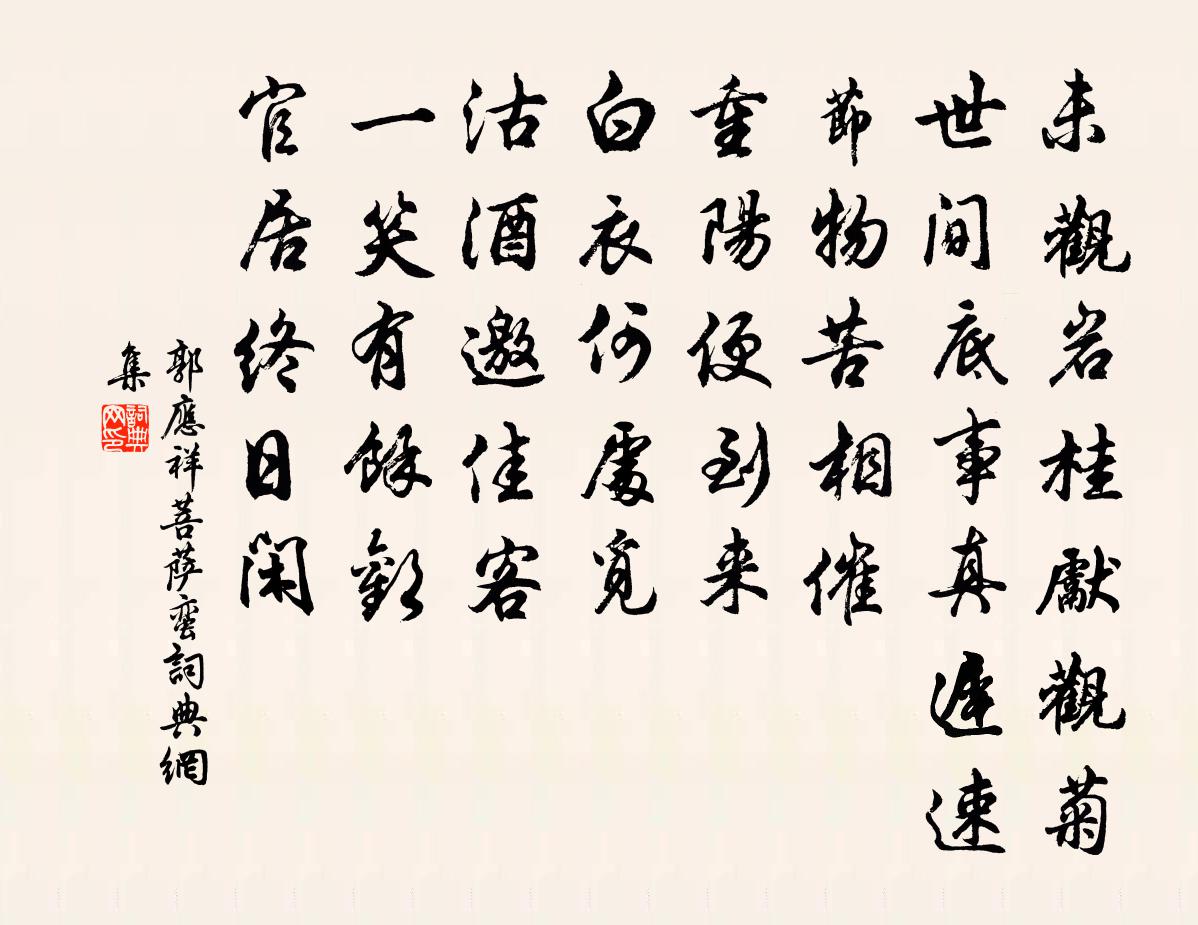 未觀岩桂獻觀菊
世間底事真遲速
節物苦相催
重陽便到来
白衣何處覓
沽酒邀佳客
一笑有餘歡
官居終日閑
郭應祥菩薩蠻詞典網
集
詞典网印